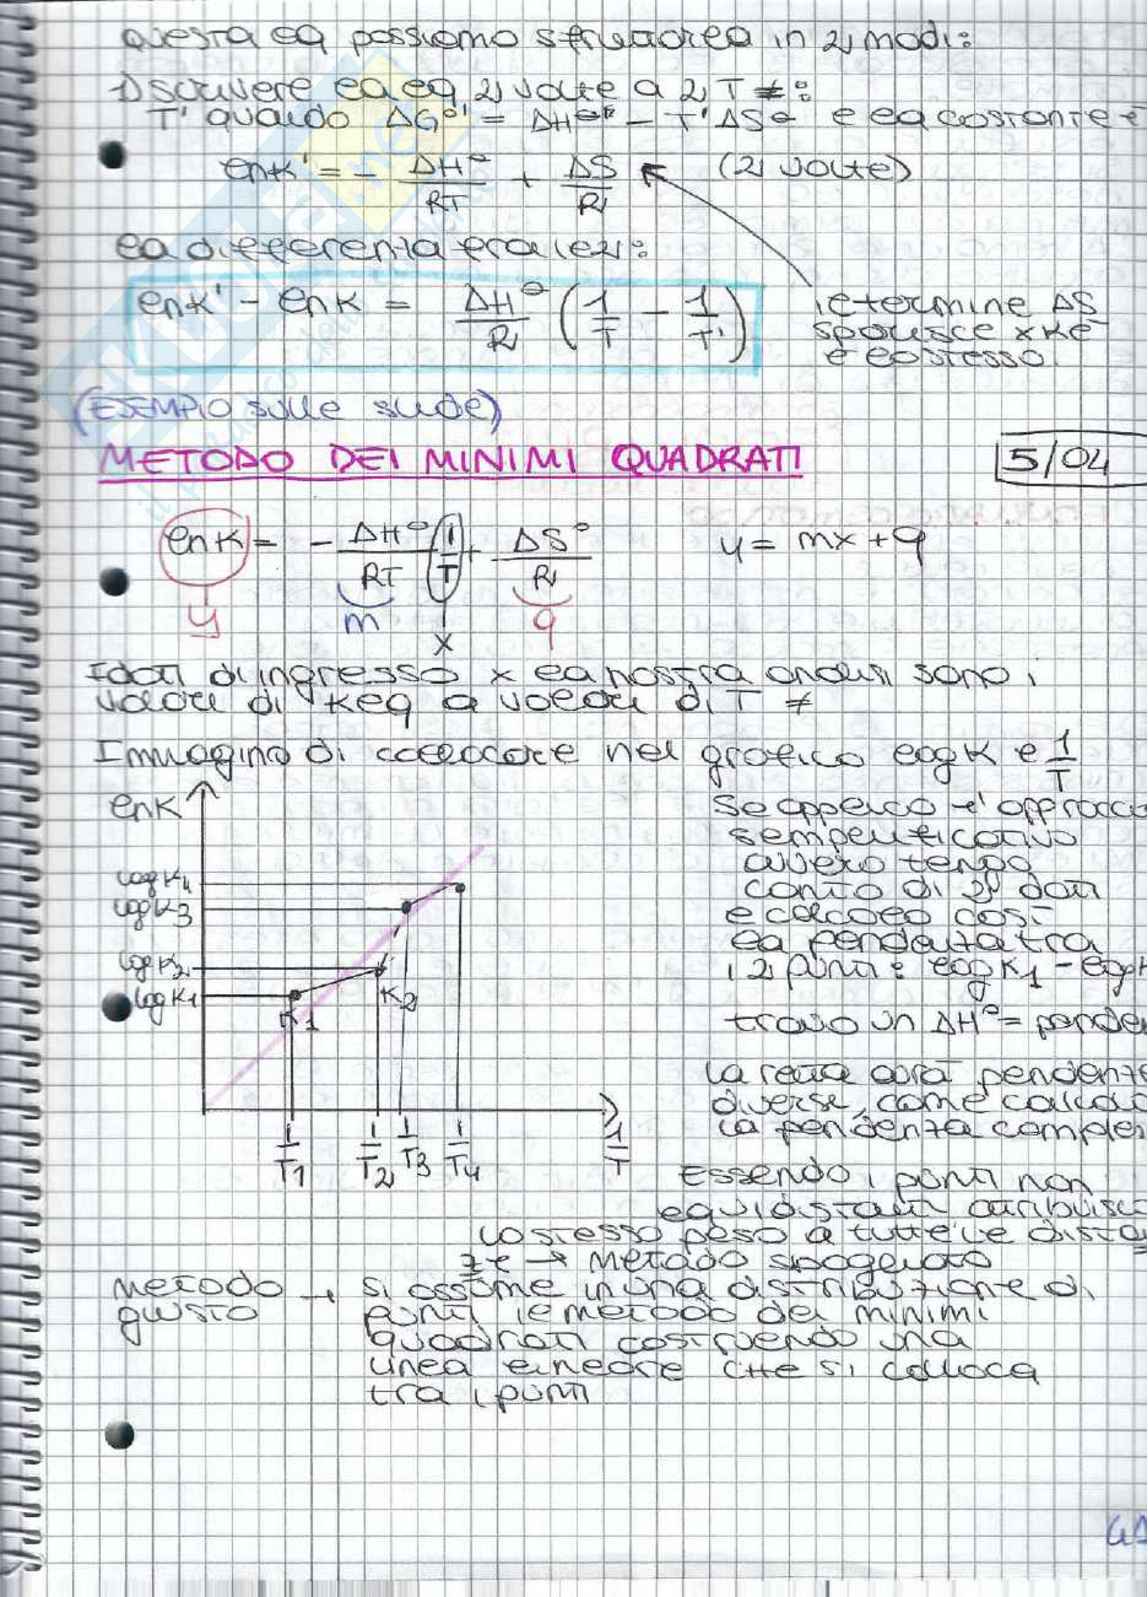 questa eq possiamo sfruttarla in 2 modi:
1) scrivere la eq 2 volte a 2 T ≠:
T' quando ΔG°' = ΔH° - T'ΔS° e la costante è
lnK' = - ΔH°/RT + ΔS/R (2 volte)
la differenza fra le 2:
lnK' - lnK = ΔH°/R (1/T - 1/T')
il termine ΔS
sparisce xkè
è lo stesso.
(ESEMPIO sulle slide)
METODO DEI MINIMI QUADRATI
5/04
lnK = - ΔH°/RT (1/T) + ΔS°/R y = mx + q
y m x q
I dati di ingresso x la nostra analisi sono i
valori di Keq a valori di T ≠
Immagino di collocare nel grafico logK e 1/T
lnK
logK4
logK3
logK2
logK1
K1
K2
1/T1 1/T2 1/T3 1/T4 1/T
Se applico l'approcco
semplificativo
ovvero tengo
conto di 2 dati
e calcolo così
la pendenza tra
i 2 punti: logK1 - logK
trovo un ΔH° = penden
La retta avrà pendenze
diverse, come calcolo
la pendenza comples
Essendo i punti non
equidistanti attribuisco
lo stesso peso a tutte le dista
ze → metodo sbagliato
metodo → si assume in una distribuzione di
giusto punti il metodo dei minimi
quadrati costruendo una
linea lineare che si colloca
tra i punti